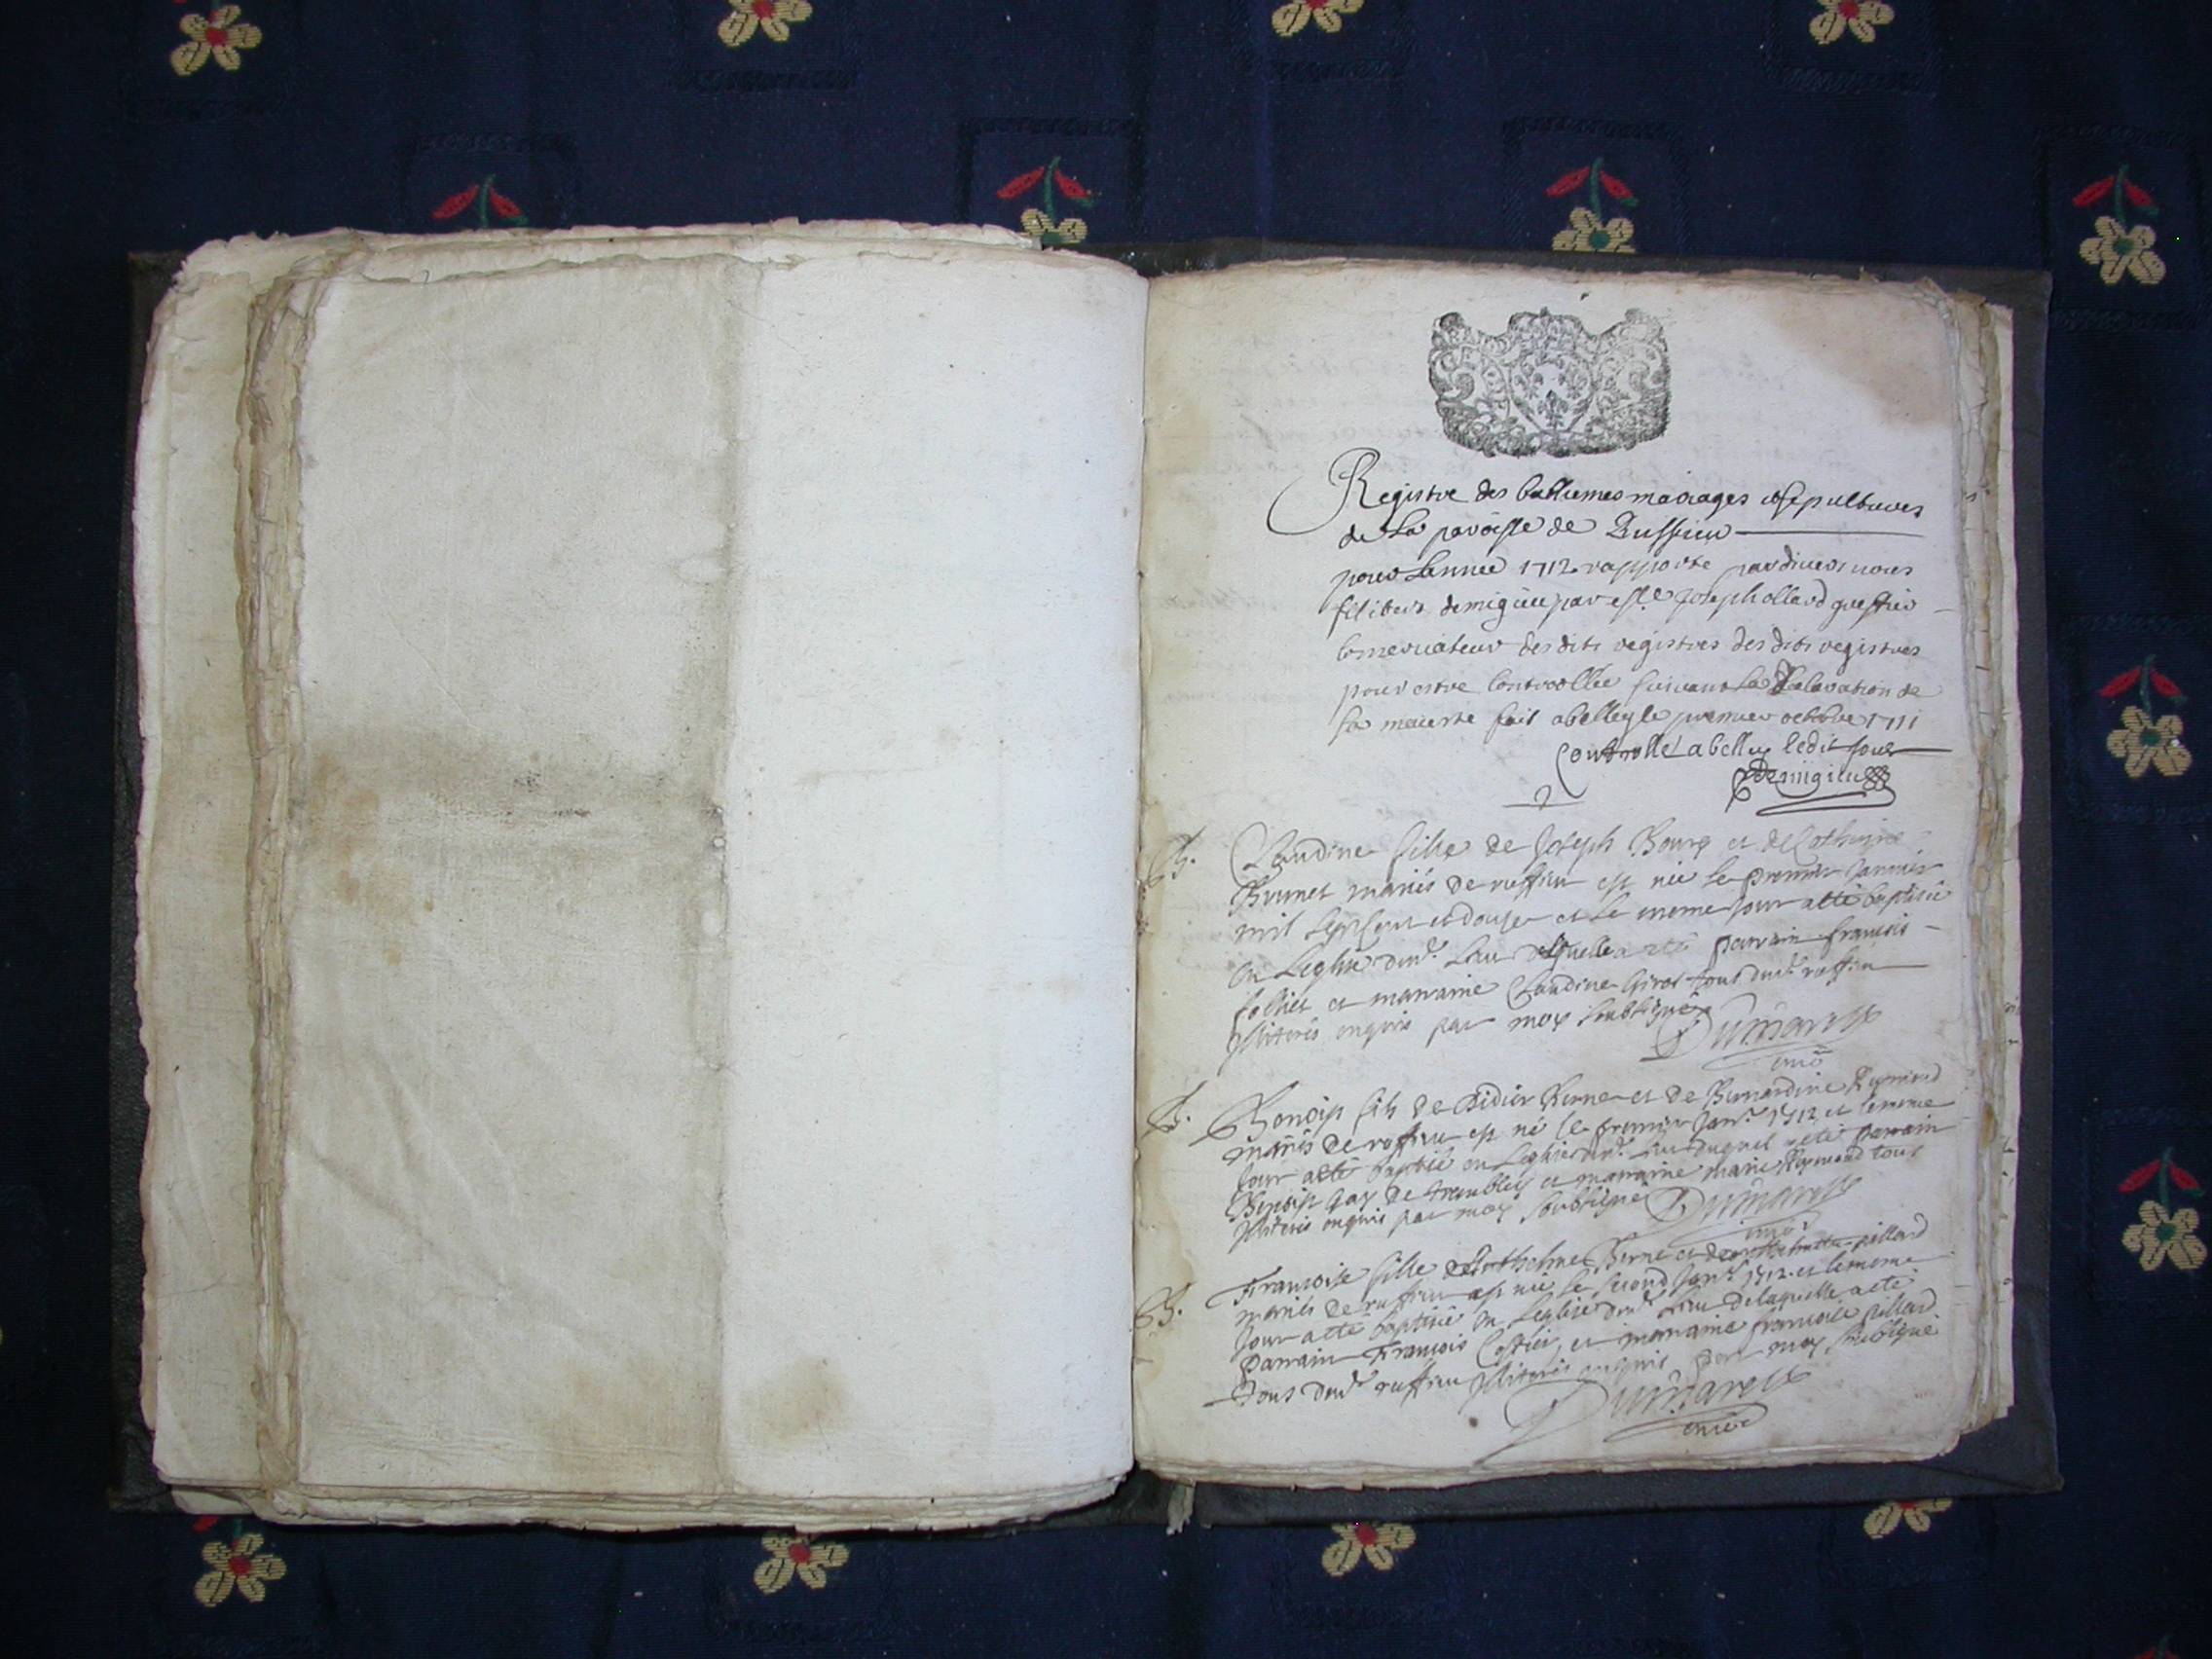 Registre des battemes mariages et sepultures
de La paroisse de Ruffieu
pour Lannee 1712 rapporte par
demigieu par Joseph ollard greffier
conservateur des dits registres des dits registres
pour estre controollee suivant la declaration de
sa maieste fait a belley le premier octobre 1711
Controlle a belley ledit jour
Demigieu
B. Claudine fille de Joseph Bourg et de Catherine
Brunet mariés de ruffieu est née le premier Janvier
mil sept cent et douze et le meme jour a eté baptisée
en Leglise dud.t Lieu de laquelle a eté parrain françois
et marraine Claudine Girod tous dud.t ruffieu
Illiterés enquis par moy soubsigné
Dumarest
curé
B. Benoist fils de Didier Berne et de Bernardine Reymond
mariés de ruffieu est né le premier Janv.r 1712 et le meme
jour a eté baptisé en Leglise dud.t Lieu duquel a eté parrain
Benoist Gay de trembley et marraine marie Reymond tous
Illiterés enquis par moy soubsigné Dumarest
curé
B. Francoise fille d'Anthelme Berne et de pillard
mariés de ruffieu est née le second Janv.r 1712 et le meme
jour a eté baptisée en Leglise dud.t Lieu de laquelle a eté
parrain François et marraine francoise pillard
tous dud.t ruffieu Illiterés enquis par moy soubsigné
Dumarest
curé